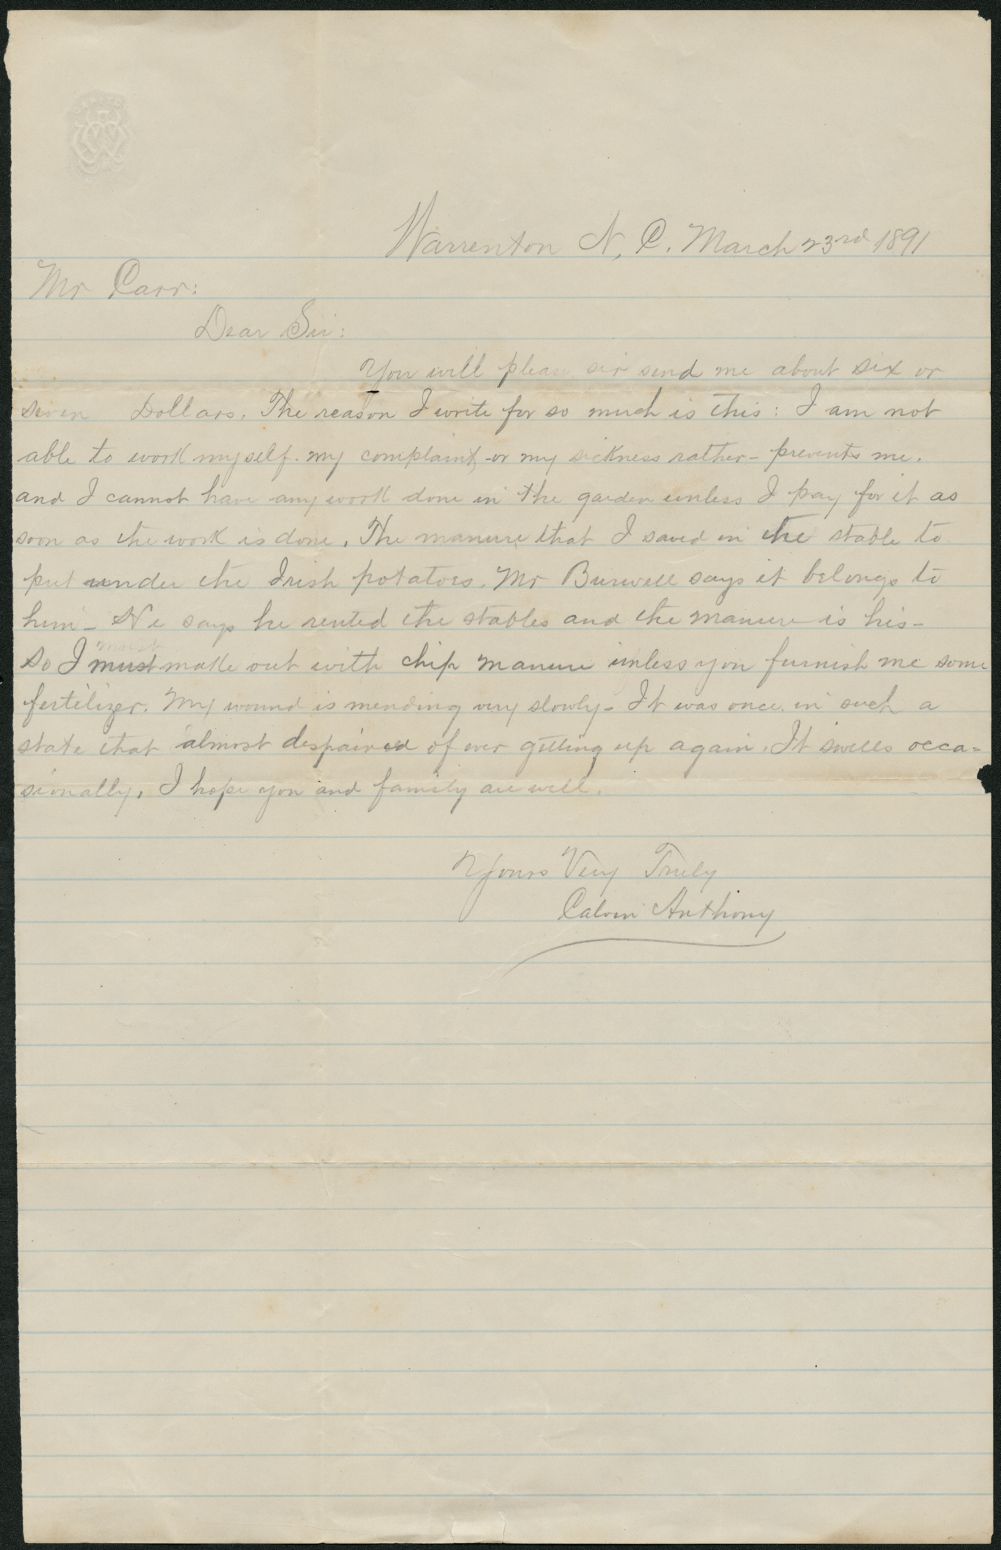 Warrenton N, C. March 23rd 1891
Mr Carr:
Dear Sir:
You will please sir send me about six or
seven Dollars. The reason I write for so much is this: I am not
able to work myself. my complaint - or my sickness rather - prevents me.
and I cannot have any work done in the garden unless I pay for it as
soon as the work is done. The manure that I saved in the stable to
put under the Irish potatoes. Mr Burwell says it belongs to
him - He says he rented the stables and the manure is his -
must
so I must make out with chip manure unless you furnish me some
fertilizer. My wound is mending very slowly - It was once in such a
state that almost despaired of ever getting up again. It swells occa-
sionally. I hope you and family are well.
Yours Very Truly
Calvin Anthony